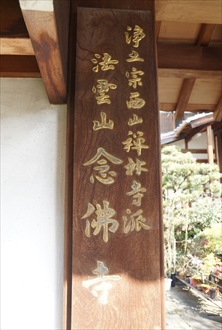 浄土宗西山禅林寺派
法雲山念佛寺